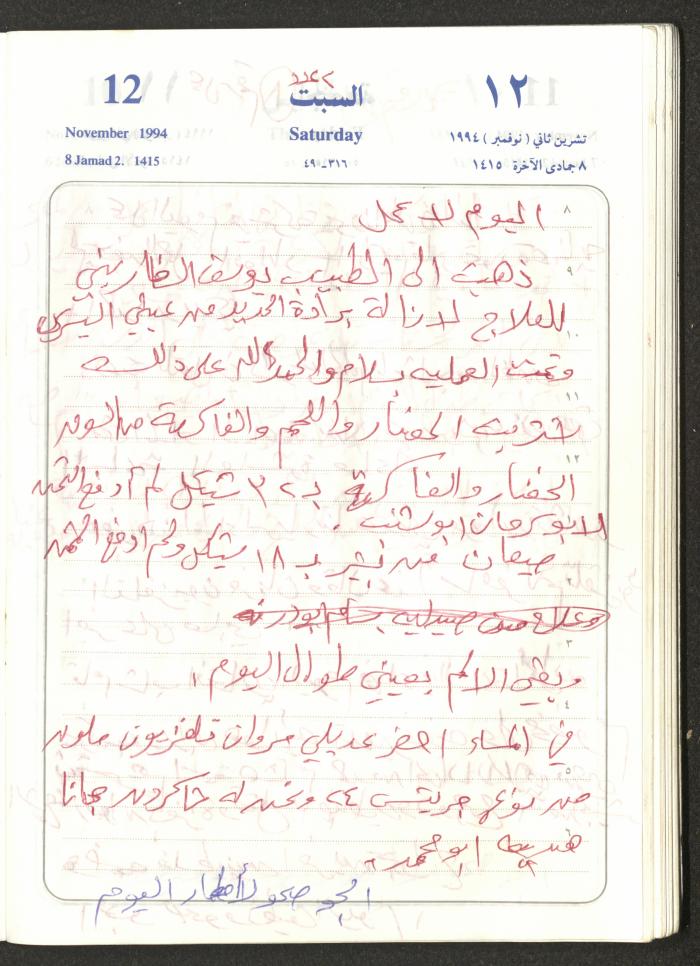 12 السبت ١٢
November 1994 Saturday تشرين ثاني ( نوفمبر ) ١٩٩٤
8 Jamad 2. 1415 ٣١٦-٤٩ ٨ جمادى الآخرة ١٤١٥
٨ اليوم لا عمل
٩ ذهبت الى الطبيب يوسف
للعلاج لازالة برادة الحديد من عيني اليسرى
١٠
وتمت العمليه بسلام والحمد لله على ذلك
١١
اشتريت الخضار واللحم والفاكهة من السوق
١٢
الخضار والفاكهة بـ ٣٢ شيكل لم أدفع الثمن
لابو
من بشير بـ ١٨ شيكل ولم ادفع الثمن
٢
وعلاج من صيدلية بسام
٣
وبقي الالم بعيني طوال اليوم
٤
في المساء احضر عديلي مروان تلفزيون ملون
٥
من نوع ٢٤ ونحن له شاكرون مجانا
٦ هديه ابو محمد
الجو صحو لا أمطار اليوم